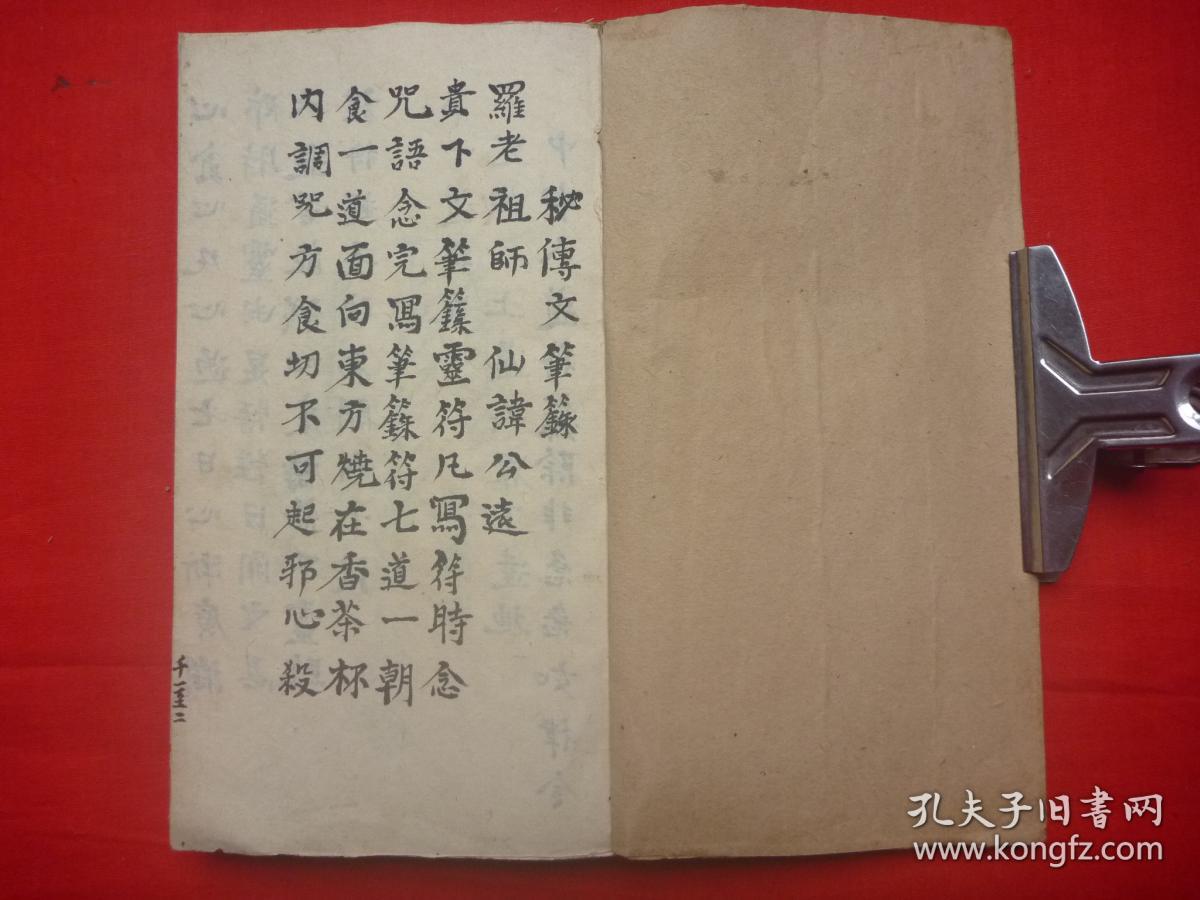 秘傳文筆籙
羅老祖師 仙諱公遠
貴下文筆籙靈符凡寫符時念
咒語念完寫筆籙符七道一朝
食一道面向東方燒在香茶杯
内調咒方食切不可起邪心殺
千一至二
孔夫子旧书网
www.kongfz.com